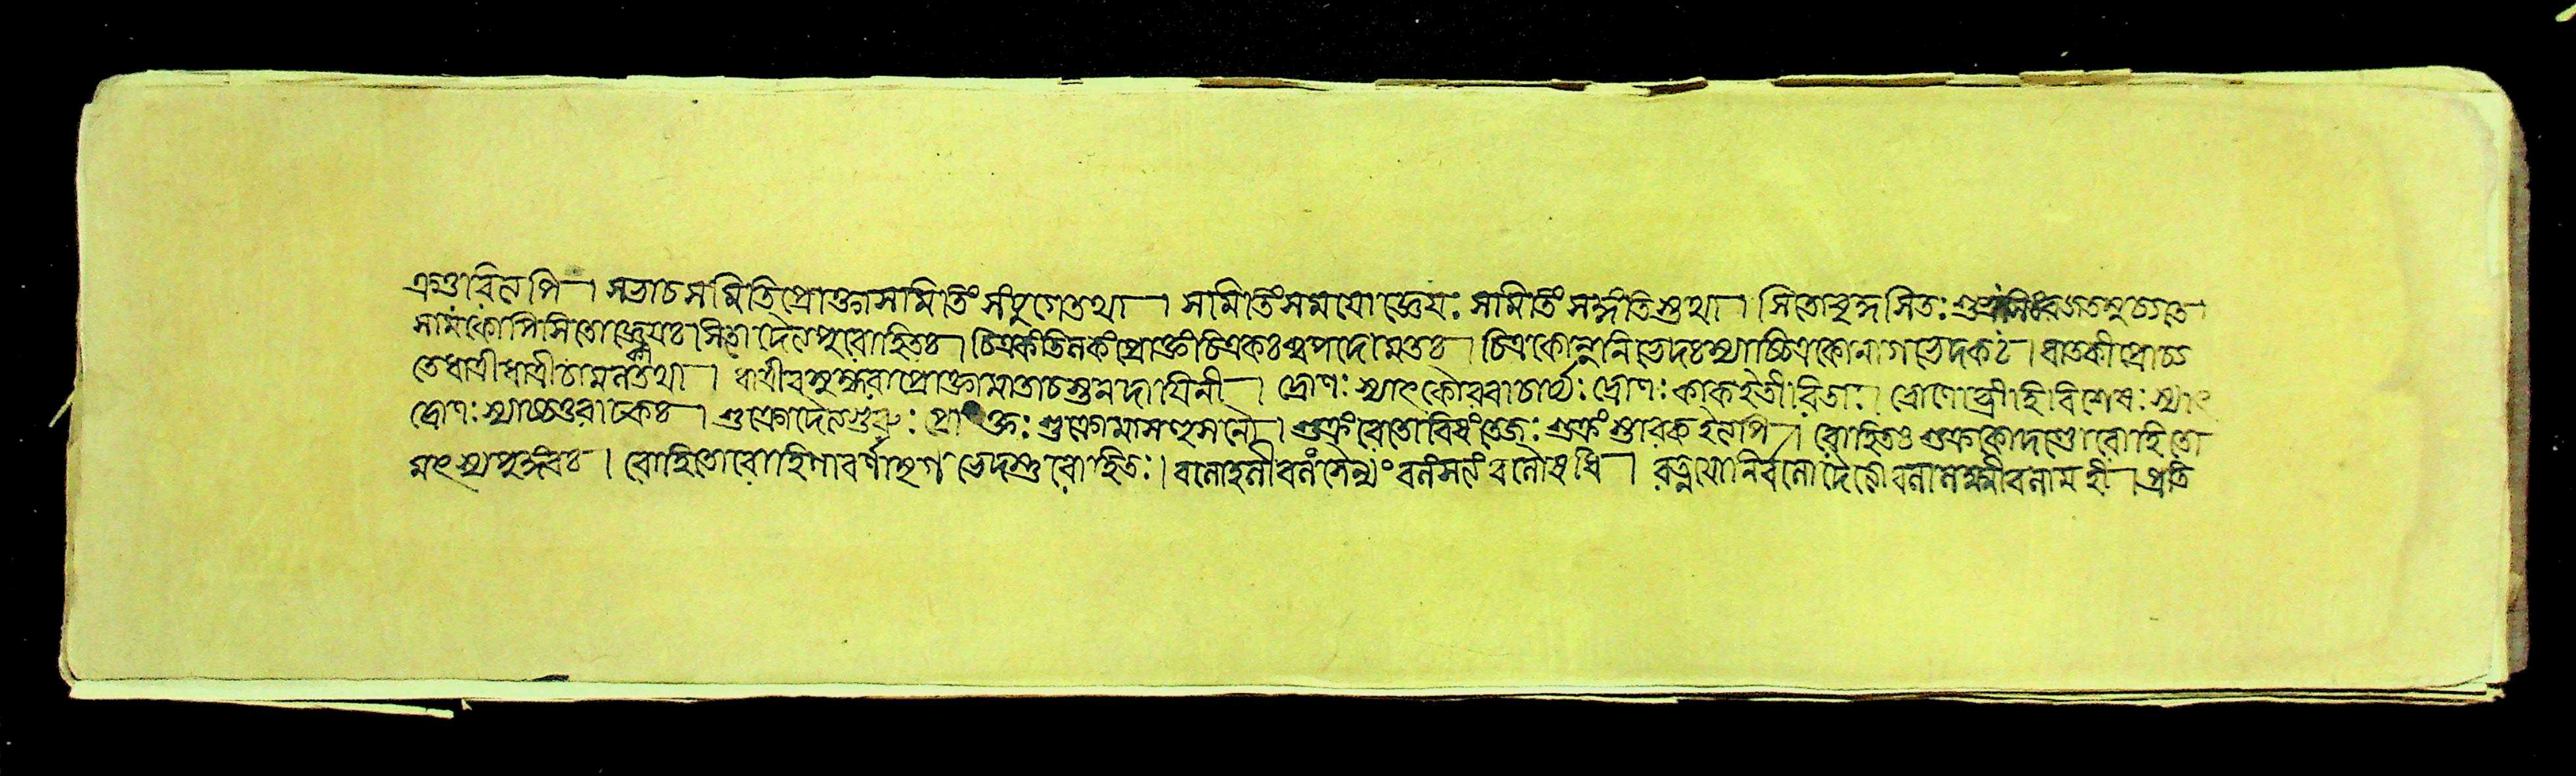 এণ্ডাবিলপি । সভাচসমিতিপ্রোক্তাসামিতিং সংযুগেতথা । সামিতিংসময়োজ্ঞেয়ঃ সামিতিং সঙ্গতিস্তথা । সিতোবৃদ্ধসিতঃ
সামকোপিসিতোজ্ঞেয়ঃ সিতো দৈত্যপুরোহিতঃ । চিত্রকংতিলকংপ্রোক্তংচিত্রকঃশ্বপদোমতঃ । চিত্রকোমুনিভেদঃস্যাচ্চিত্রকোনাগভেদকঃ । ধাতকীপ্রোচ্য
তেধাত্রীধাত্রীচামলতথা । ধাত্রীবসুন্ধরাপ্রোক্তামাতাচস্তনদায়িনী । দ্রোণঃ স্যাৎকৌরবাচার্য্যঃ দ্রোণঃ কাকইতীরিতাঃ । দ্রোণোব্রীহিবিশেষঃ স্যাৎ
দ্রোণঃ স্যাচ্চতুরাঢকঃ । শুক্রোদৈত্যগুরুঃ প্রোক্তঃ শুক্রোমাসহুসনৌ । শুক্রংরেতোবিষংতেজঃ শুক্রং শ্রাবকইলপি । রোহিতঞ্চ শুক্রকোদণ্ডোরোহিতো
মৎস্যপুঙ্গবঃ । রোহিতোরোহিণাবর্ণাহৃগভেদস্তুরোহিতঃ । বলোহলীবলংসৈন্যং বলংসলং বলৌষধি । রত্নযোনির্বলোদৈত্যোবলালক্ষ্মীবলামহী । প্রতি